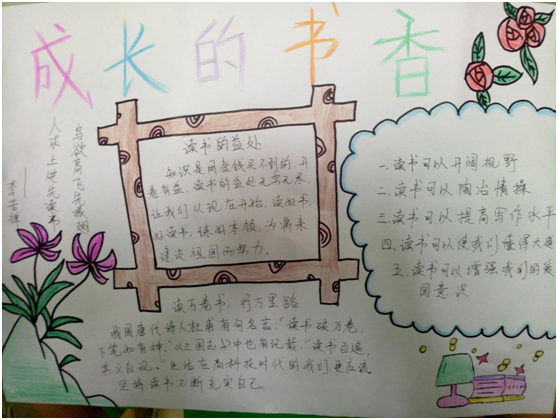 成长的书香
鸟欲高飞先振翅
人求上进先读书
——李苦禅
读书的益处
知识是用金钱买不到的,开
卷有益,读书的益处无穷无尽,
让我们从现在开始,读好书,
好读书,练好本领,为将来
建设祖国而努力。
一.读书可以开阔视野
二.读书可以陶冶情操
三.读书可以提高写作水平
四.读书可以使我们懂得大道
五.读书可以增强我们的爱
国意识
读万卷书,行万里路
我国唐代诗人杜甫有句名言:“读书破万卷,
下笔如有神。”《三国志》中也有记载:“读书百遍,
其义自见。”生活在高科技时代的我们,更应该
坚持读书不断充实自己。